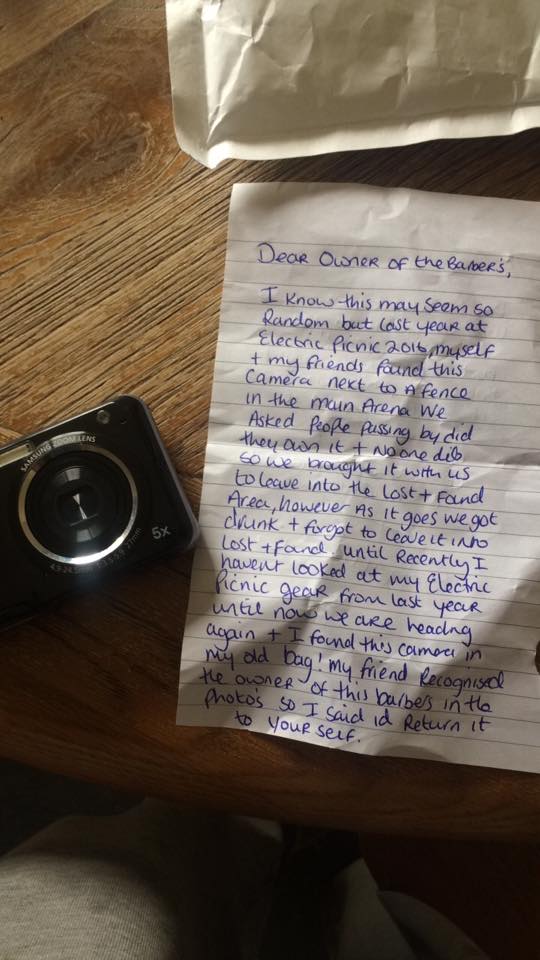 Dear Owner of the Barber's,
I know this may seem so
Random but last year at
Electric Picnic 2016, myself
+ my friends found this
camera next to a fence
in the main Arena We
Asked people passing by did
they own it + no one did
so we brought it with us
to leave into the Lost + Found
Area, however As it goes we got
drunk + forgot to leave it into
Lost + Found. until Recently I
havent looked at my Electric
Picnic gear from last year
until now we are heading
again + I found this camera in
my old bag! my friend Recognised
the owner of this barbers in the
photo's so I said id Return it
to your self.
SAMSUNG ZOOM LENS
5x